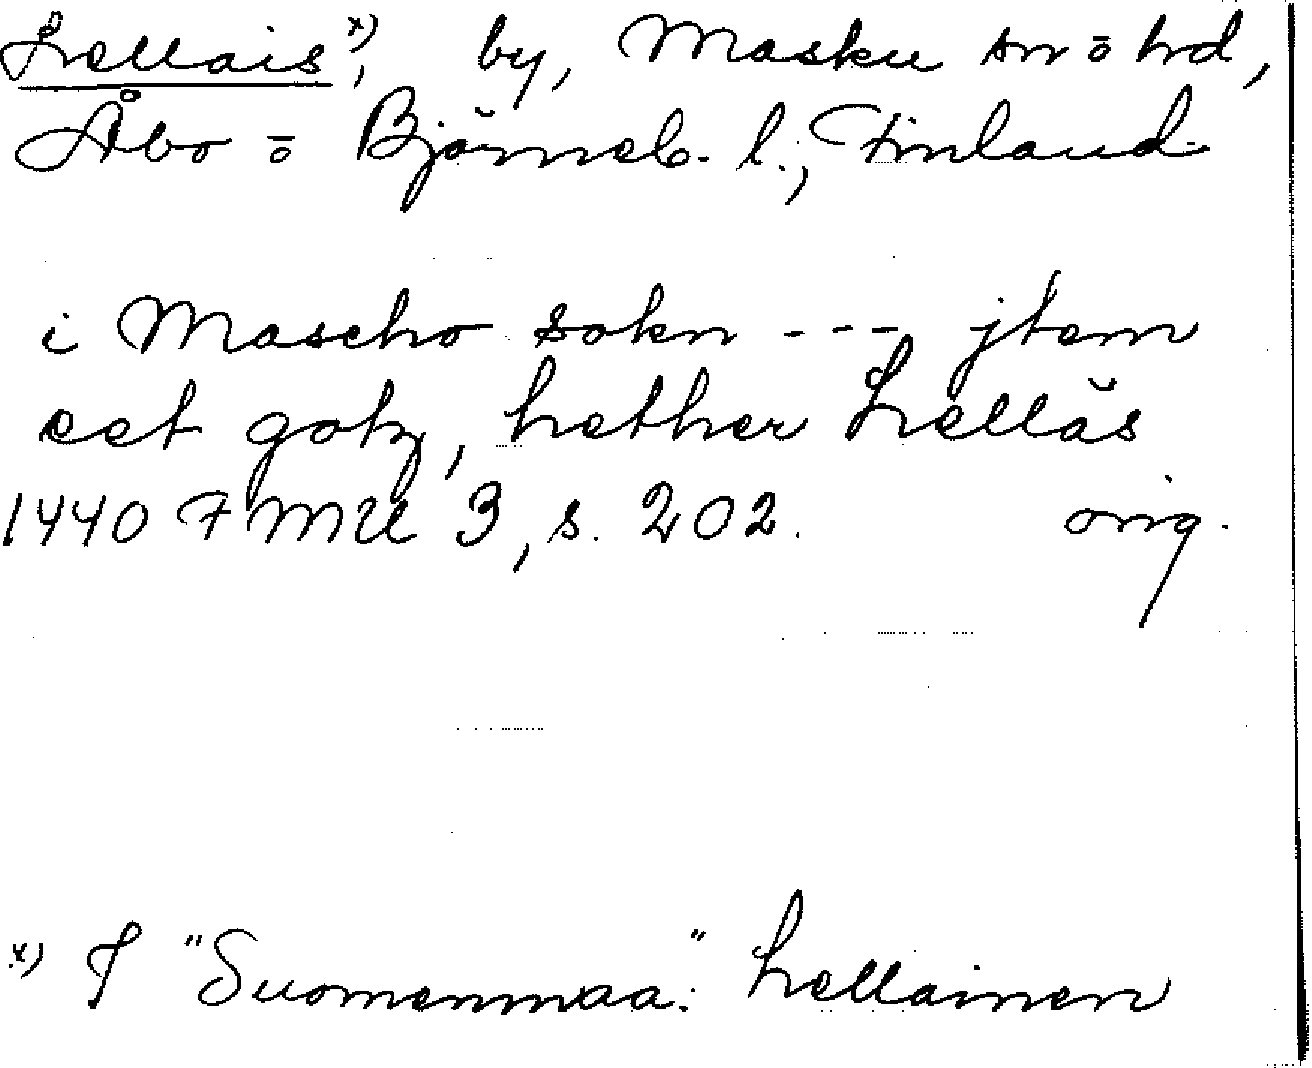 Lellais x), by, Masku sn o hd,
Åbo o Björneb. l., Finland
i Mascho sokn --- jtem
eet gotz, hether Lellăs
1440 FMU 3, s. 202. orig.
x) I "Suomenmaa": Lellainen